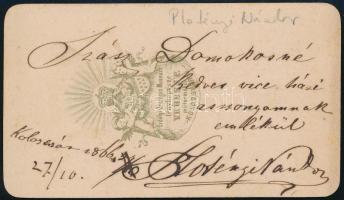 Plotényi Nándor
Szász Domokosné
kedves vice házi
asszonyomnak
emlékül
Kolozsvár 1866
27/10.
Plotényi Nándor